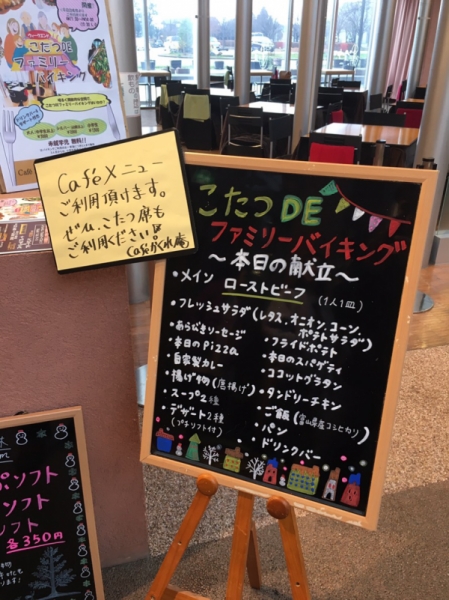 こたつDE
ファミリー
バイキング
Caféメニュー
ご利用頂けます。
ぜひ、こたつ席も
ご利用ください!!
こたつDE
ファミリーバイキング
～本日の献立～
・メイン ローストビーフ (1人1皿)
・フレッシュサラダ(レタス、オニオン、コーン、
ポテトサラダ)
・あらびきソーセージ
・本日のPizza
・自家製カレー
・揚げ物(唐揚げ)
・スープ2種
・デザート2種
(プチソフト付)
・フライドポテト
・本日のスパゲティ
・ココットグラタン
・タンドリーチキン
・ご飯(富山県産コシヒカリ)
・パン
・ドリンクバー
ソフト
ソフト
ソフト
各350円